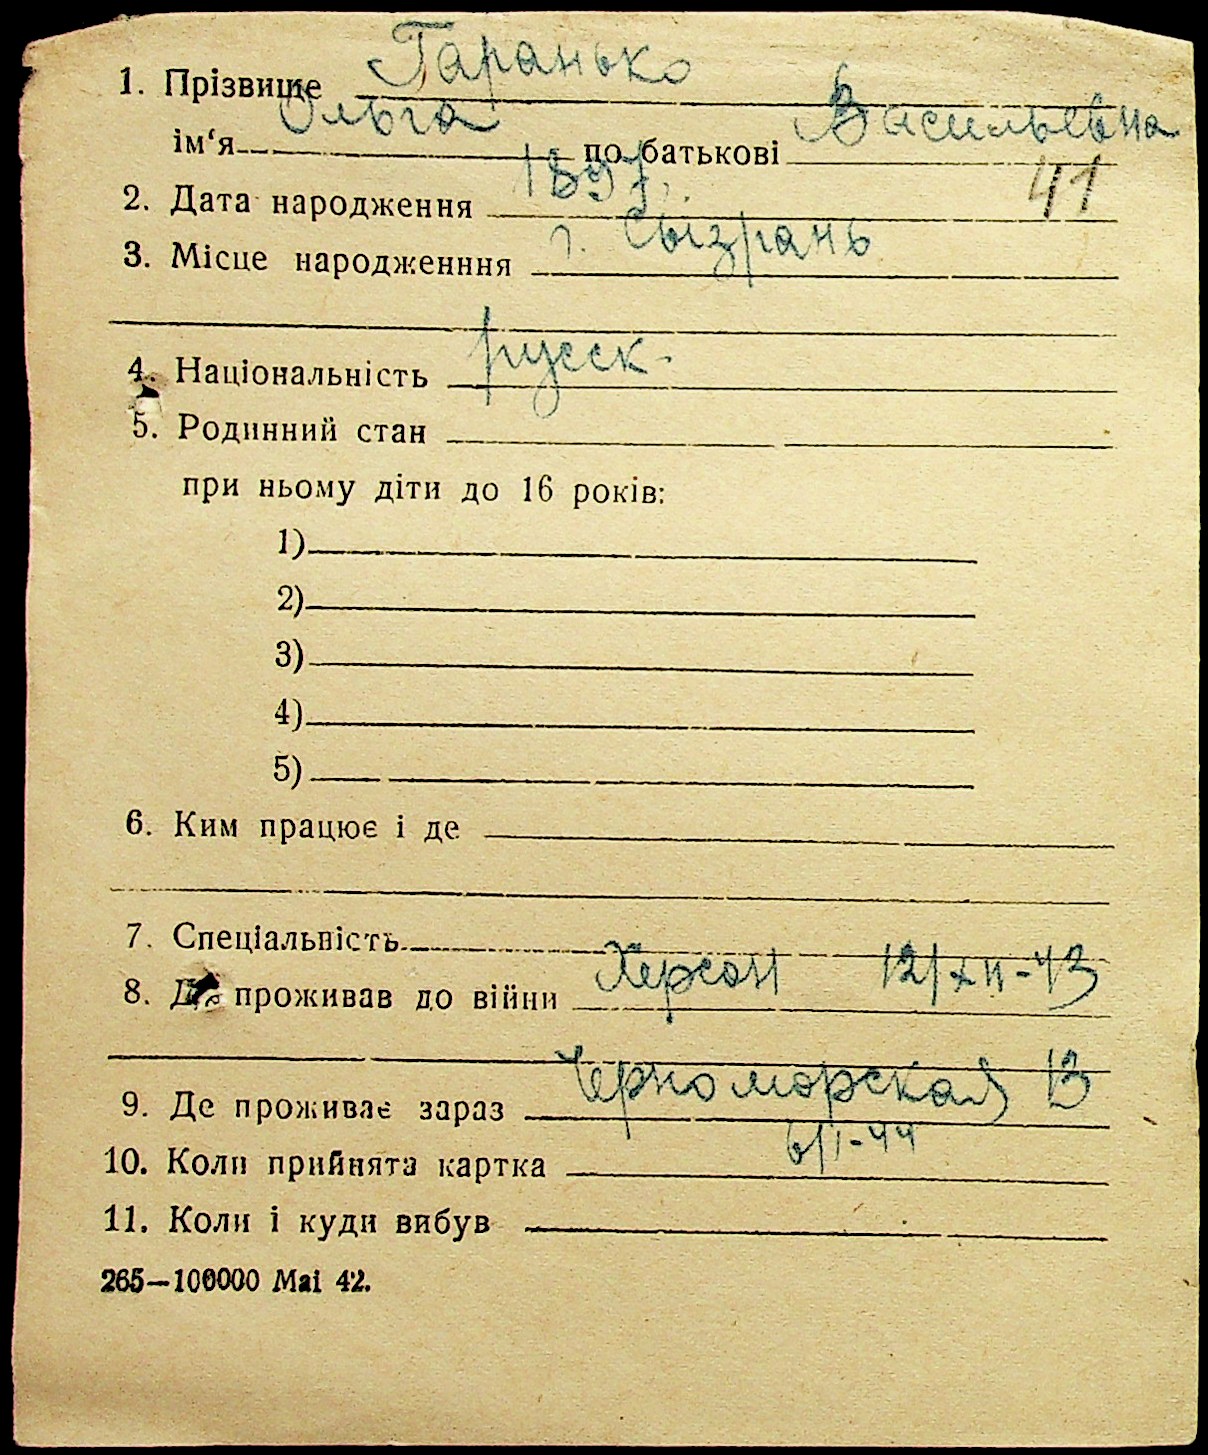 1. Прізвище Гаранько
ім‘я Ольга по батькові Васильевна
2. Дата народження 1897 41
3. Місце народженння г. Сызрань
4. Національність русск.
5. Родинний стан
при ньому діти до 16 років:
1)
2)
3)
4)
5)
6. Ким працює і де
7. Спеціальність
8. Де проживав до війни Херсон 12/XII-43
9. Де проживає зараз Черноморская 13
10. Коли прийнята картка 6/I-44
11. Коли і куди вибув
265—100000 Mai 42.